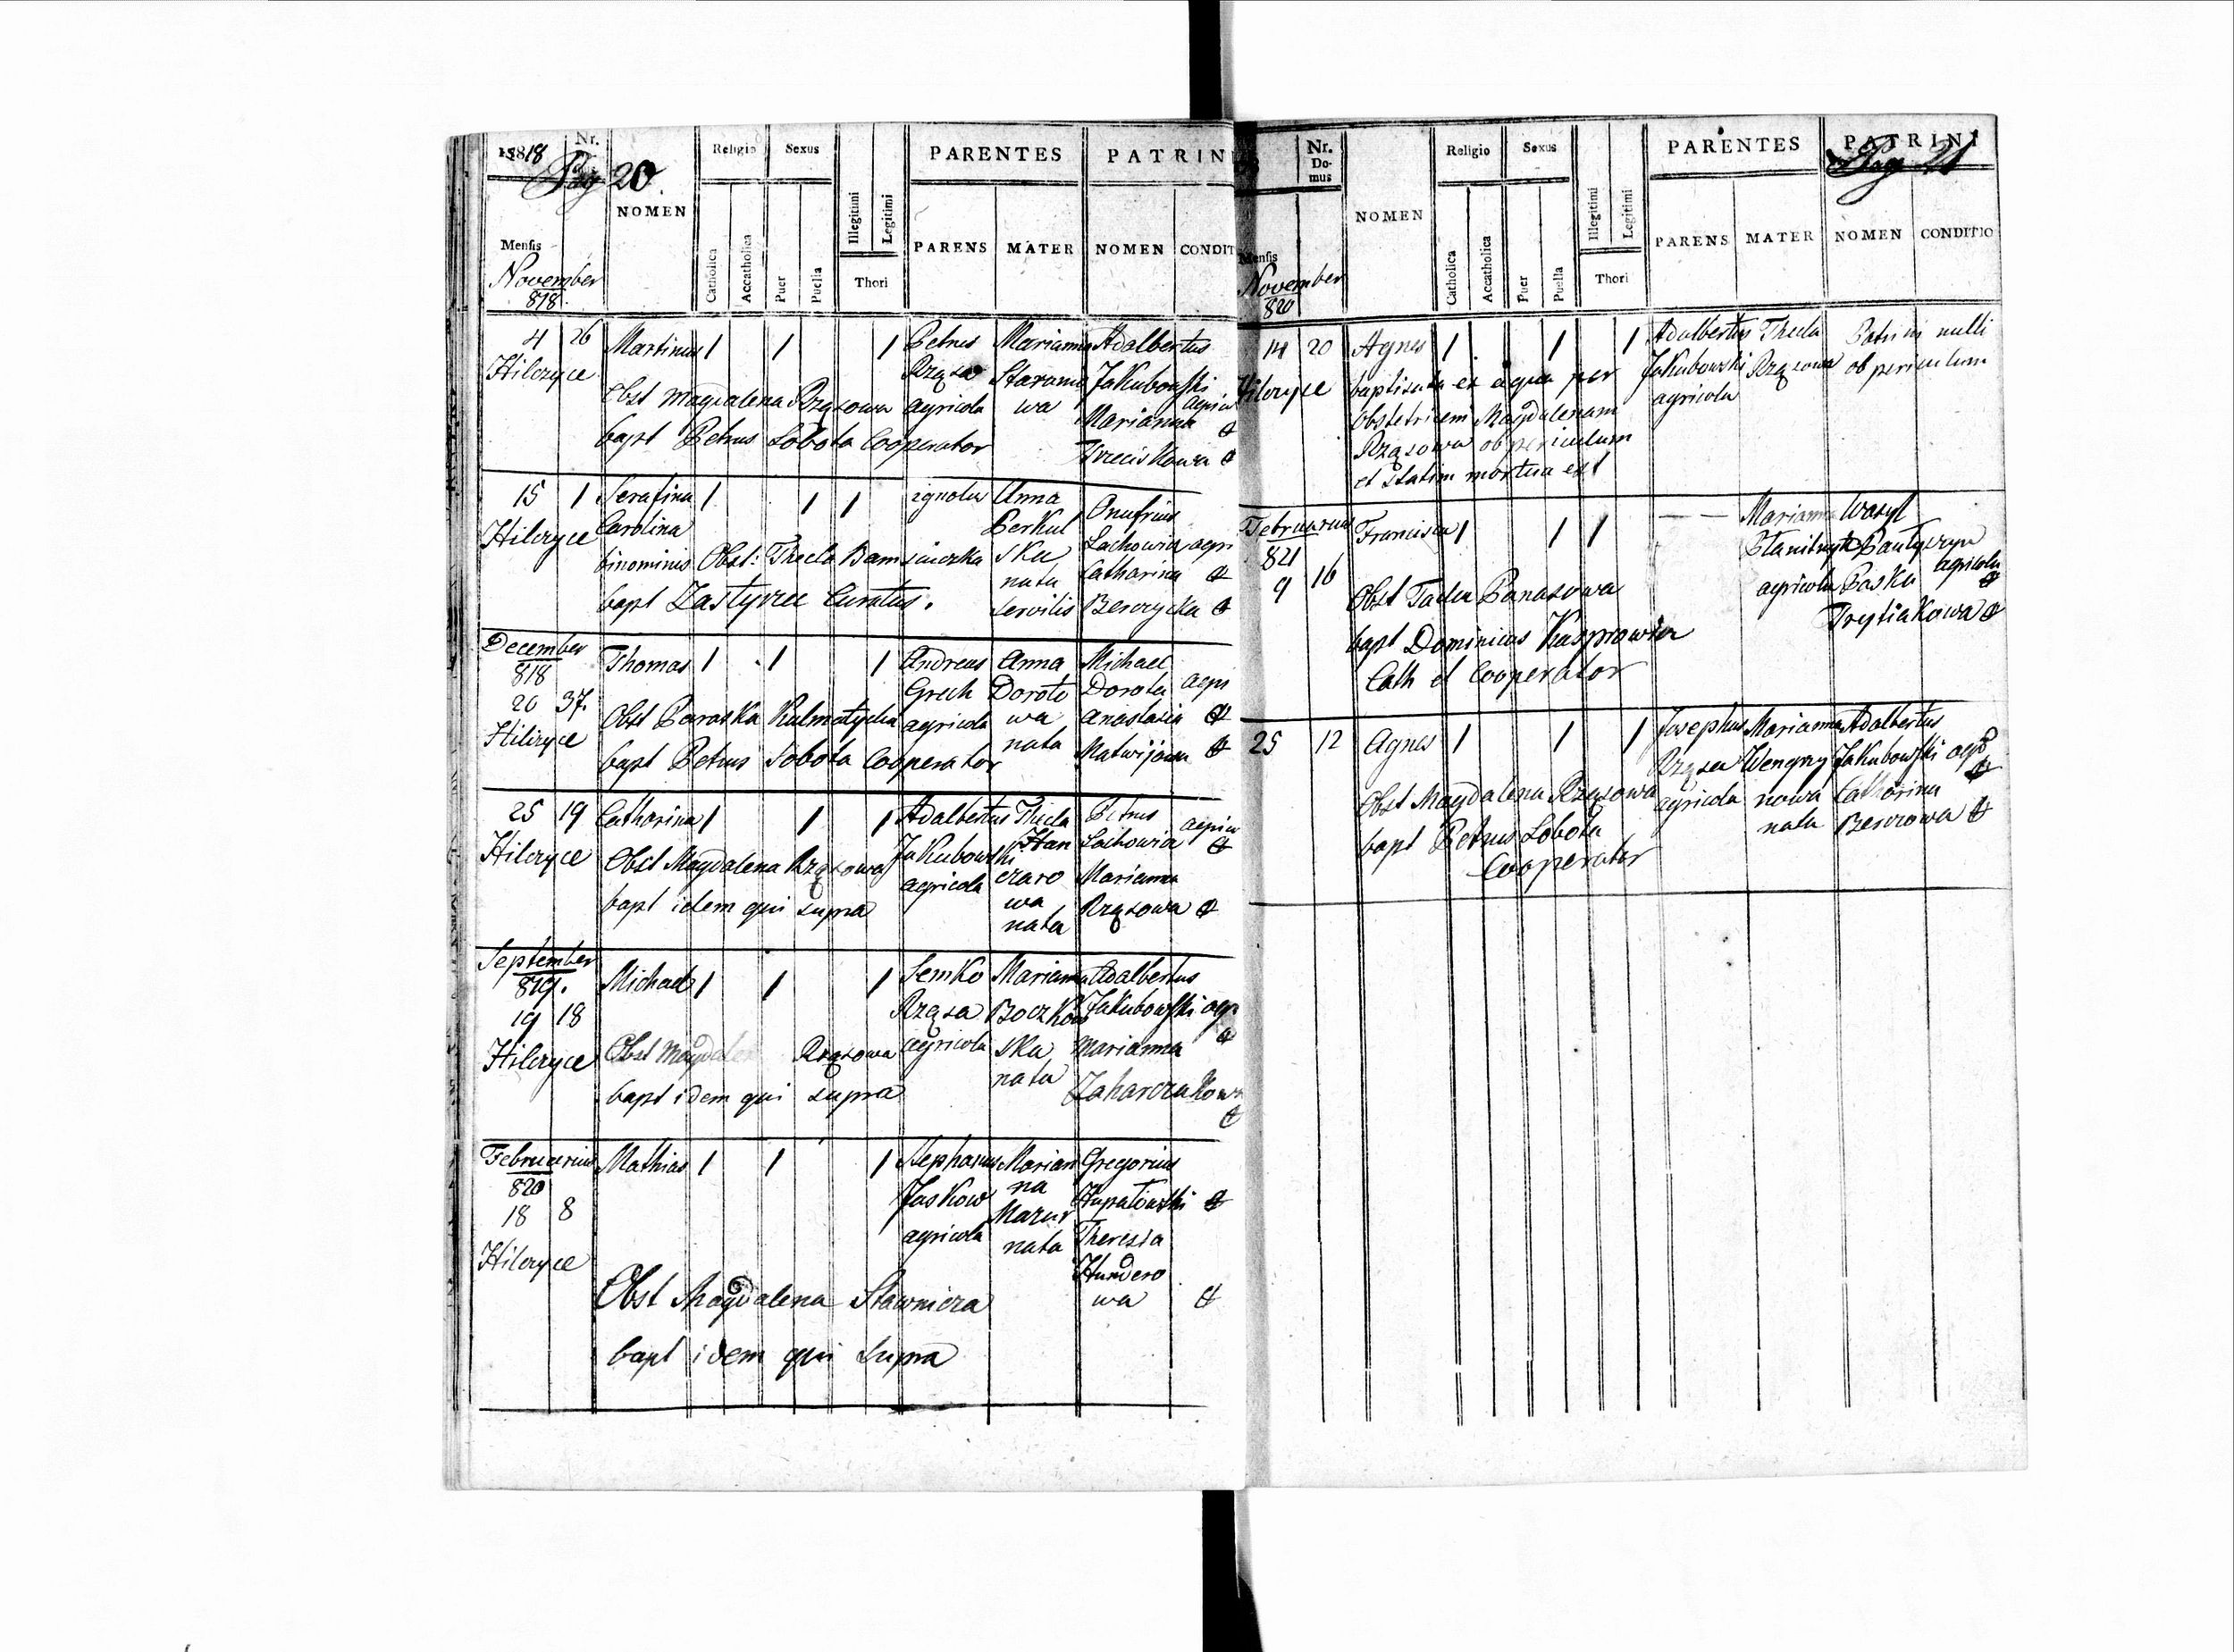 1818
Nr.
Pag 20.
Religio
Sexus
PARENTES
PATRIN
NOMEN
Catholica
Accatholica
Puer
Puella
Illegitimi
Legitimi
Thori
PARENS
MATER
NOMEN
CONDIT
Mensis
November
818.
4 26 Martinus 1 1 1 Petrus Marianna Adalbertus
Hilczyce Rząsa Starama Jakubowski
Obst Magdalena Rząsowa agricola wa agrico
Marianna
bapt Petrus Sobota Cooperator
Trzeciskowa
15 1 Serafina 1 1 1 ignotus Anna Onufrius
Hilczyce Carolina Perkul Lachowicz agri
binominis Obst: Thecla Bam ska Catharina
nata
bapt Zastyrec Curatus. servilis Berczycka
December
818
20 37. Thomas 1 1 1 Andreas Anna Michael
Grech Doroto Dorota agri
Hilczyce Obst Paraska Kulmatycka agricola wa Anastasia
bapt Petrus Sobota Cooperator nata Matwijowa
25 19 Catharina 1 1 1 Adalbertus Thecla Petrus agrico
Hilczyce Jakubowski Han Lachowicz
Obst Magdalena Rząsowa agricola czaro Marianna
bapt idem qui supra wa Rząsowa
nata
September
819.
19 18 Michael 1 1 1 Semko Marianna Adalbertus
Rząsa Boczkow Jakubowski agr
Hilczyce Obst Magdalen Rząsowa agricola ska Marianna
bapt idem qui supra nata Zaharczukowa
Februarius
820
18 8 Mathias 1 1 1 Stephanus Marian Gregorius
Jaskow na Hupałowski
agricola Mazur Theresia
nata
Hilczyce Hundero
Obst Magdalena Stawnicza wa
bapt idem qui supra
Nr.
Domus
Religio
Sexus
PARENTES
PATRINI
Pag 21
NOMEN
Catholica
Accatholica
Puer
Puella
Illegitimi
Legitimi
Thori
PARENS
MATER
NOMEN
CONDITIO
Mensis
November
820
14 20 Agnes 1 1 1 Adalbertus Thecla Patrini nulli
Hilczyce baptisata ex aqua per Jakubowski Rząsowa ob periculum
obstetricem Magdalenam agricola
Rząsowa ob periculum
et statim mortua est
Februarius
821
9 16 Francisca 1 1 1 Marianna Wasyl
agricola Paska agricola
Obst Panasowa Trytiakowa
bapt Dominicus Kasprowicz
Cath et Cooperator
25 12 Agnes 1 1 1 Josephus Marianna Adalbertus
Rząsa Wengrzy Jakubowski agr
Obst Magdalena Rząsowa agricola nowa Catharina
bapt Petrus Sobota nata Berezowa
Cooperator